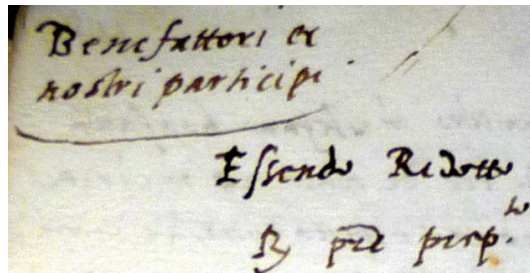 Benefattori et
nostri participi
Essendo Ridotto
prep.to